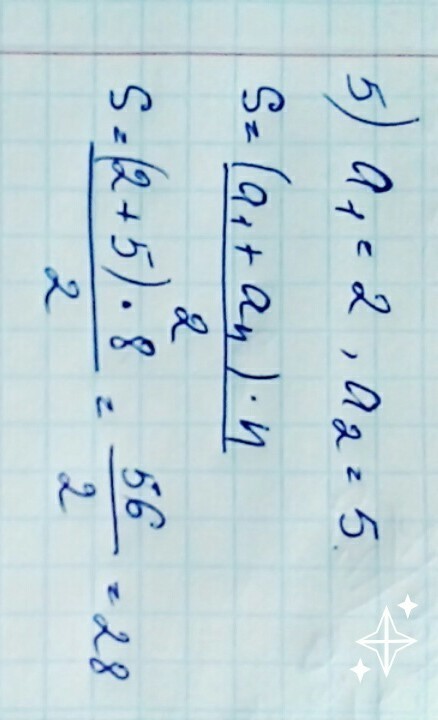 5) a₁ = 2, a₂ = 5.
S = (a₁ + aₙ) · n / 2
S = (2 + 5) · 8 / 2 = 56 / 2 = 28